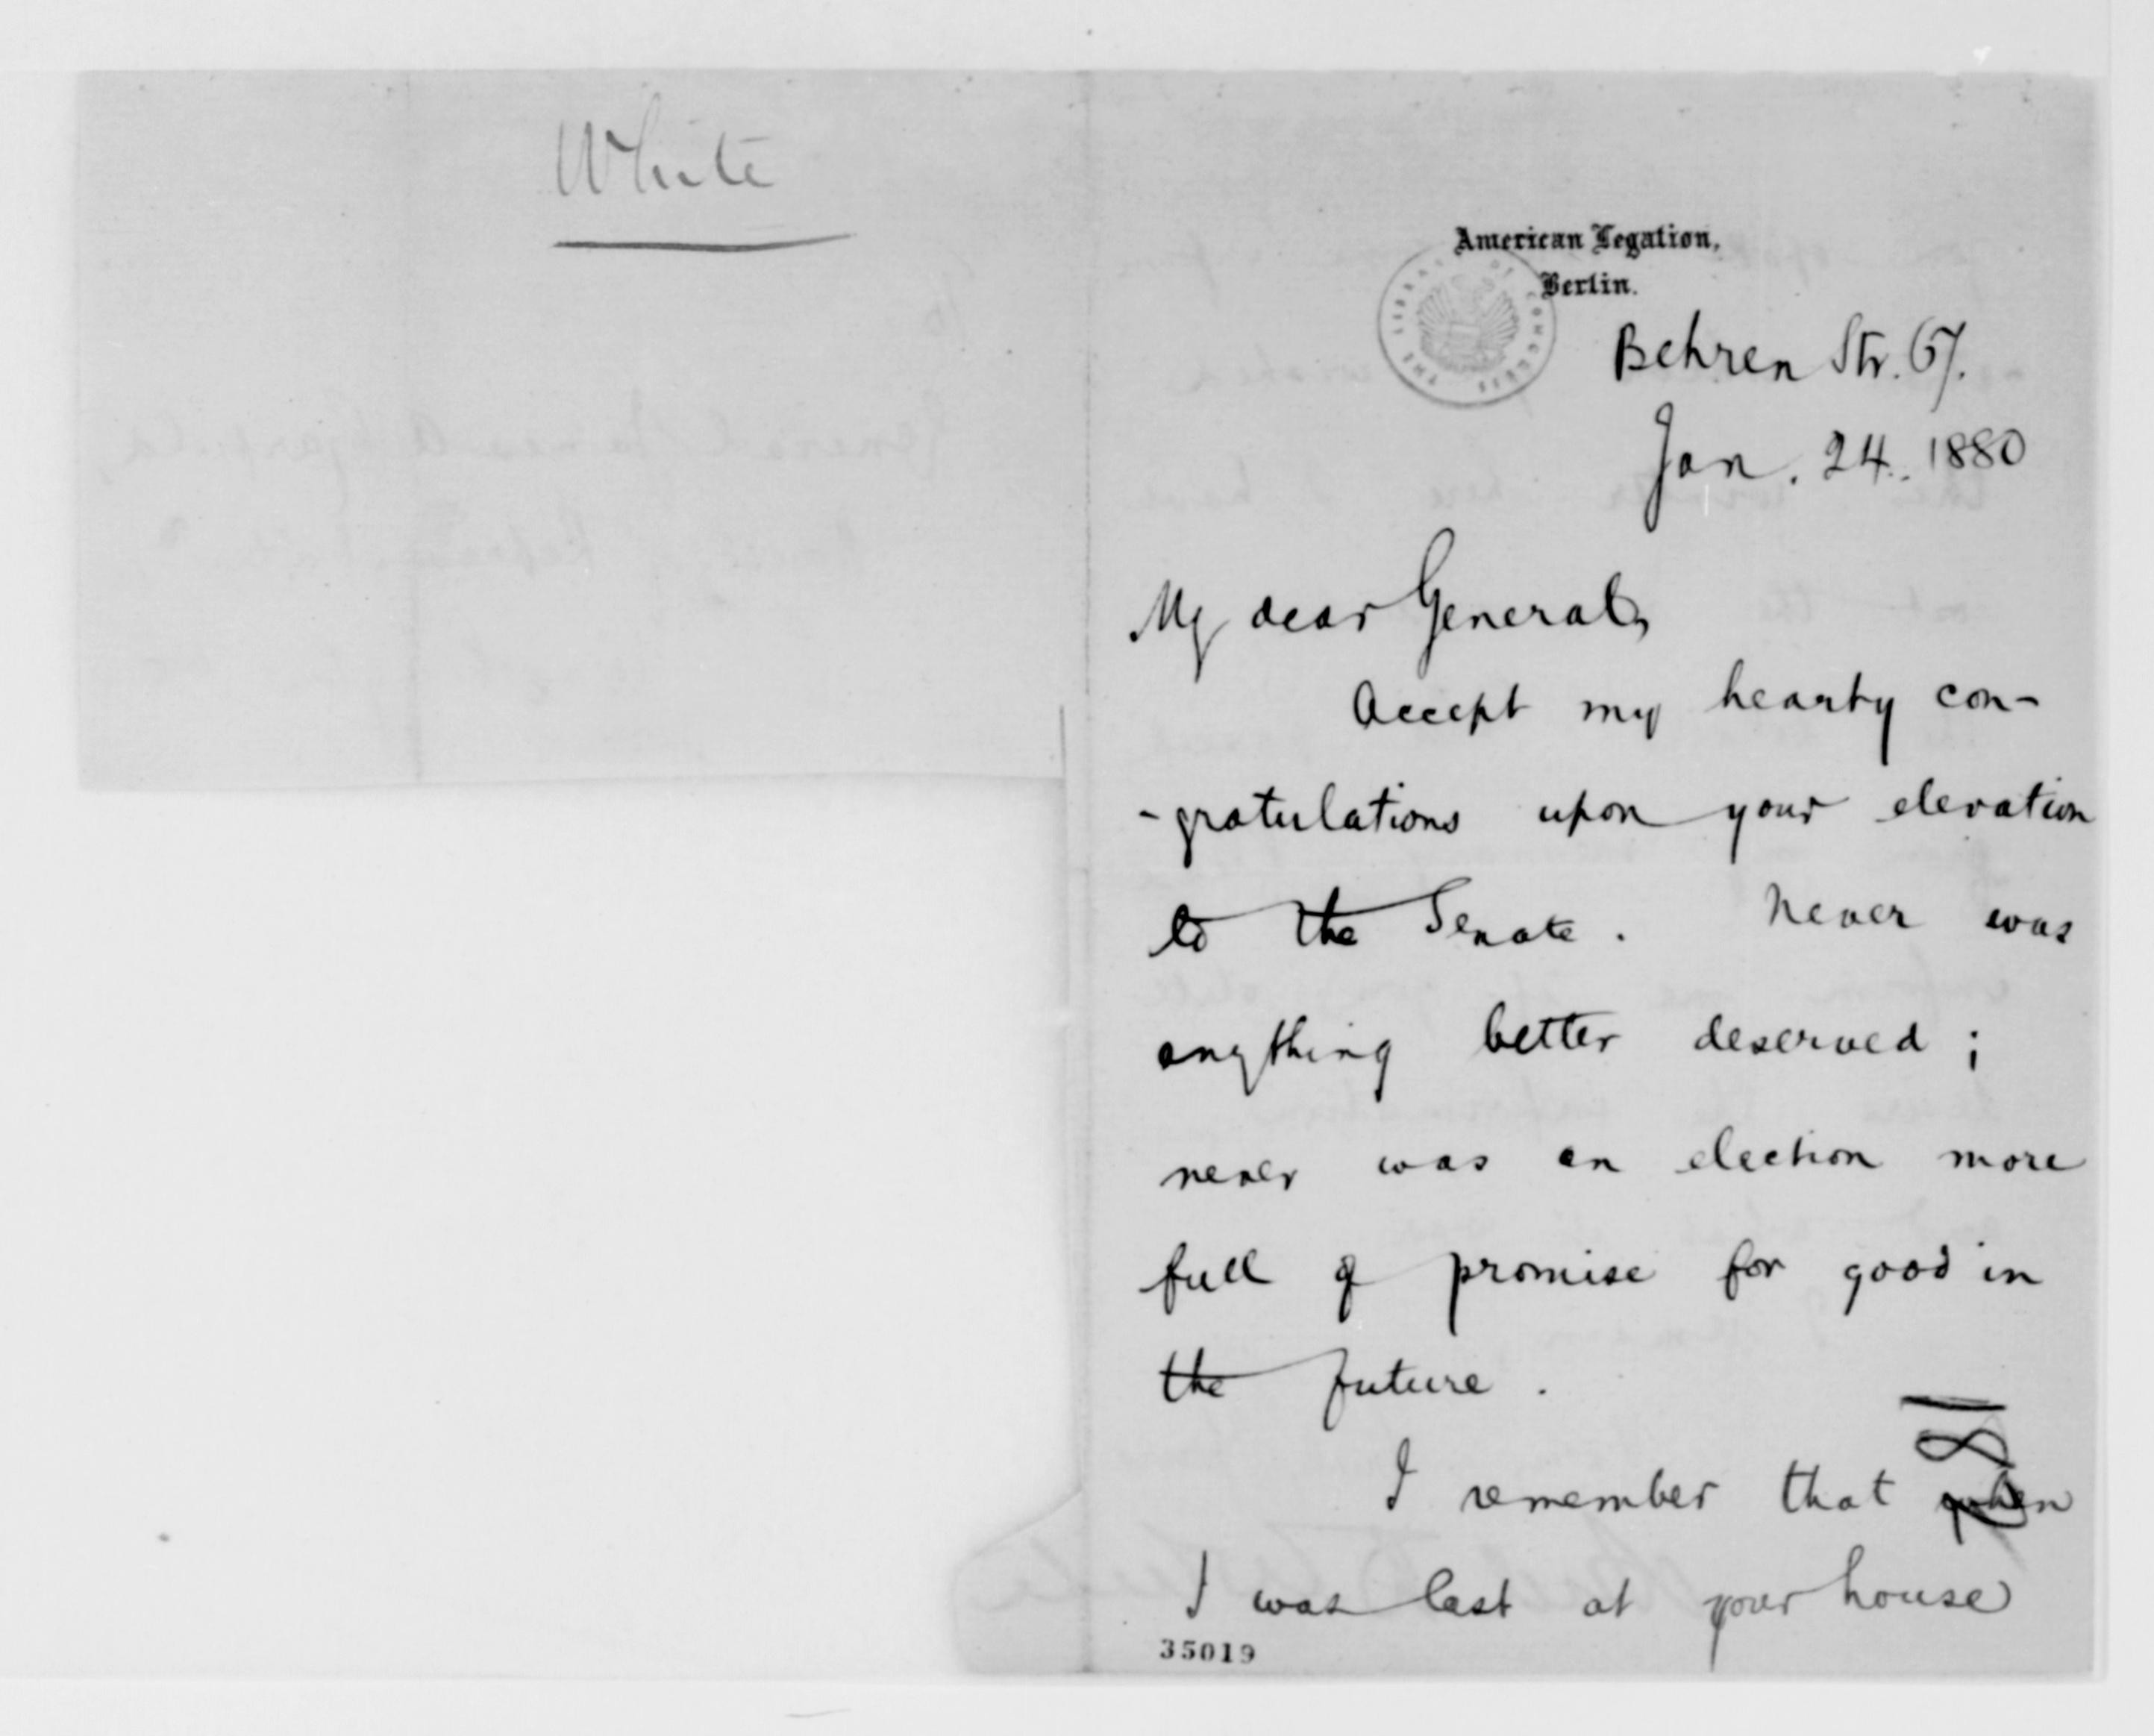 White
American Legation,
Berlin.
THE LIBRARY OF CONGRESS
Behren Str. 67.
Jan. 24. 1880
My dear General,
Accept my hearty con-
-gratulations upon your elevation
to the Senate. Never was
anything better deserved;
never was an election more
full of promise for good in
the future.
I remember that when
I was last at your house
35019